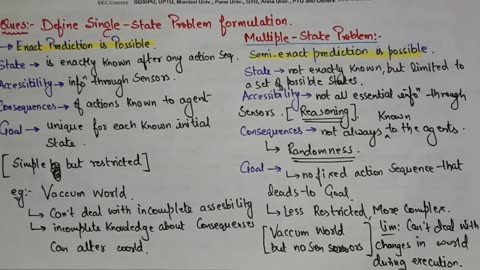 EEC Classes
GGSIPU, UPTU, Mumbai Univ., Pune Univ., GTU, Anna Univ., PTU and Others
Ques:- Define Single-State Problem formulation.
→ Exact Prediction is Possible.
State → is exactly known after any action Seq.
Accessibility → infoⁿ through Sensors.
Consequences → of actions known to agent
Goal → unique for each known initial
State.
[Simple but restricted]
eg:- Vaccum World.
↳ Can't deal with incomplete assesbility
↳ incomplete Knowledge about Consequences
Can alter world.
Multiple-State Problem:-
Semi-exact prediction is possible.
State → not exactly known, but limited to
a set of possible states.
Accessibility → not all essential infoⁿ through
Sensors. [Reasoning]
Consequences → not always known to the agents.
↳ Randomness.
Goal → no fixed action Sequence that
leads to Goal.
↳ Less Restricted, More Complex.
[Vaccum World
but no sensors]
Lim: Can't deal with
changes in world
during execution.